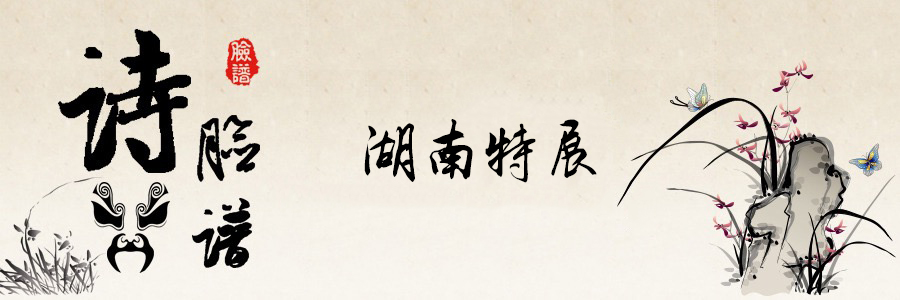 诗
脸
谱
臉
譜
湖南特展